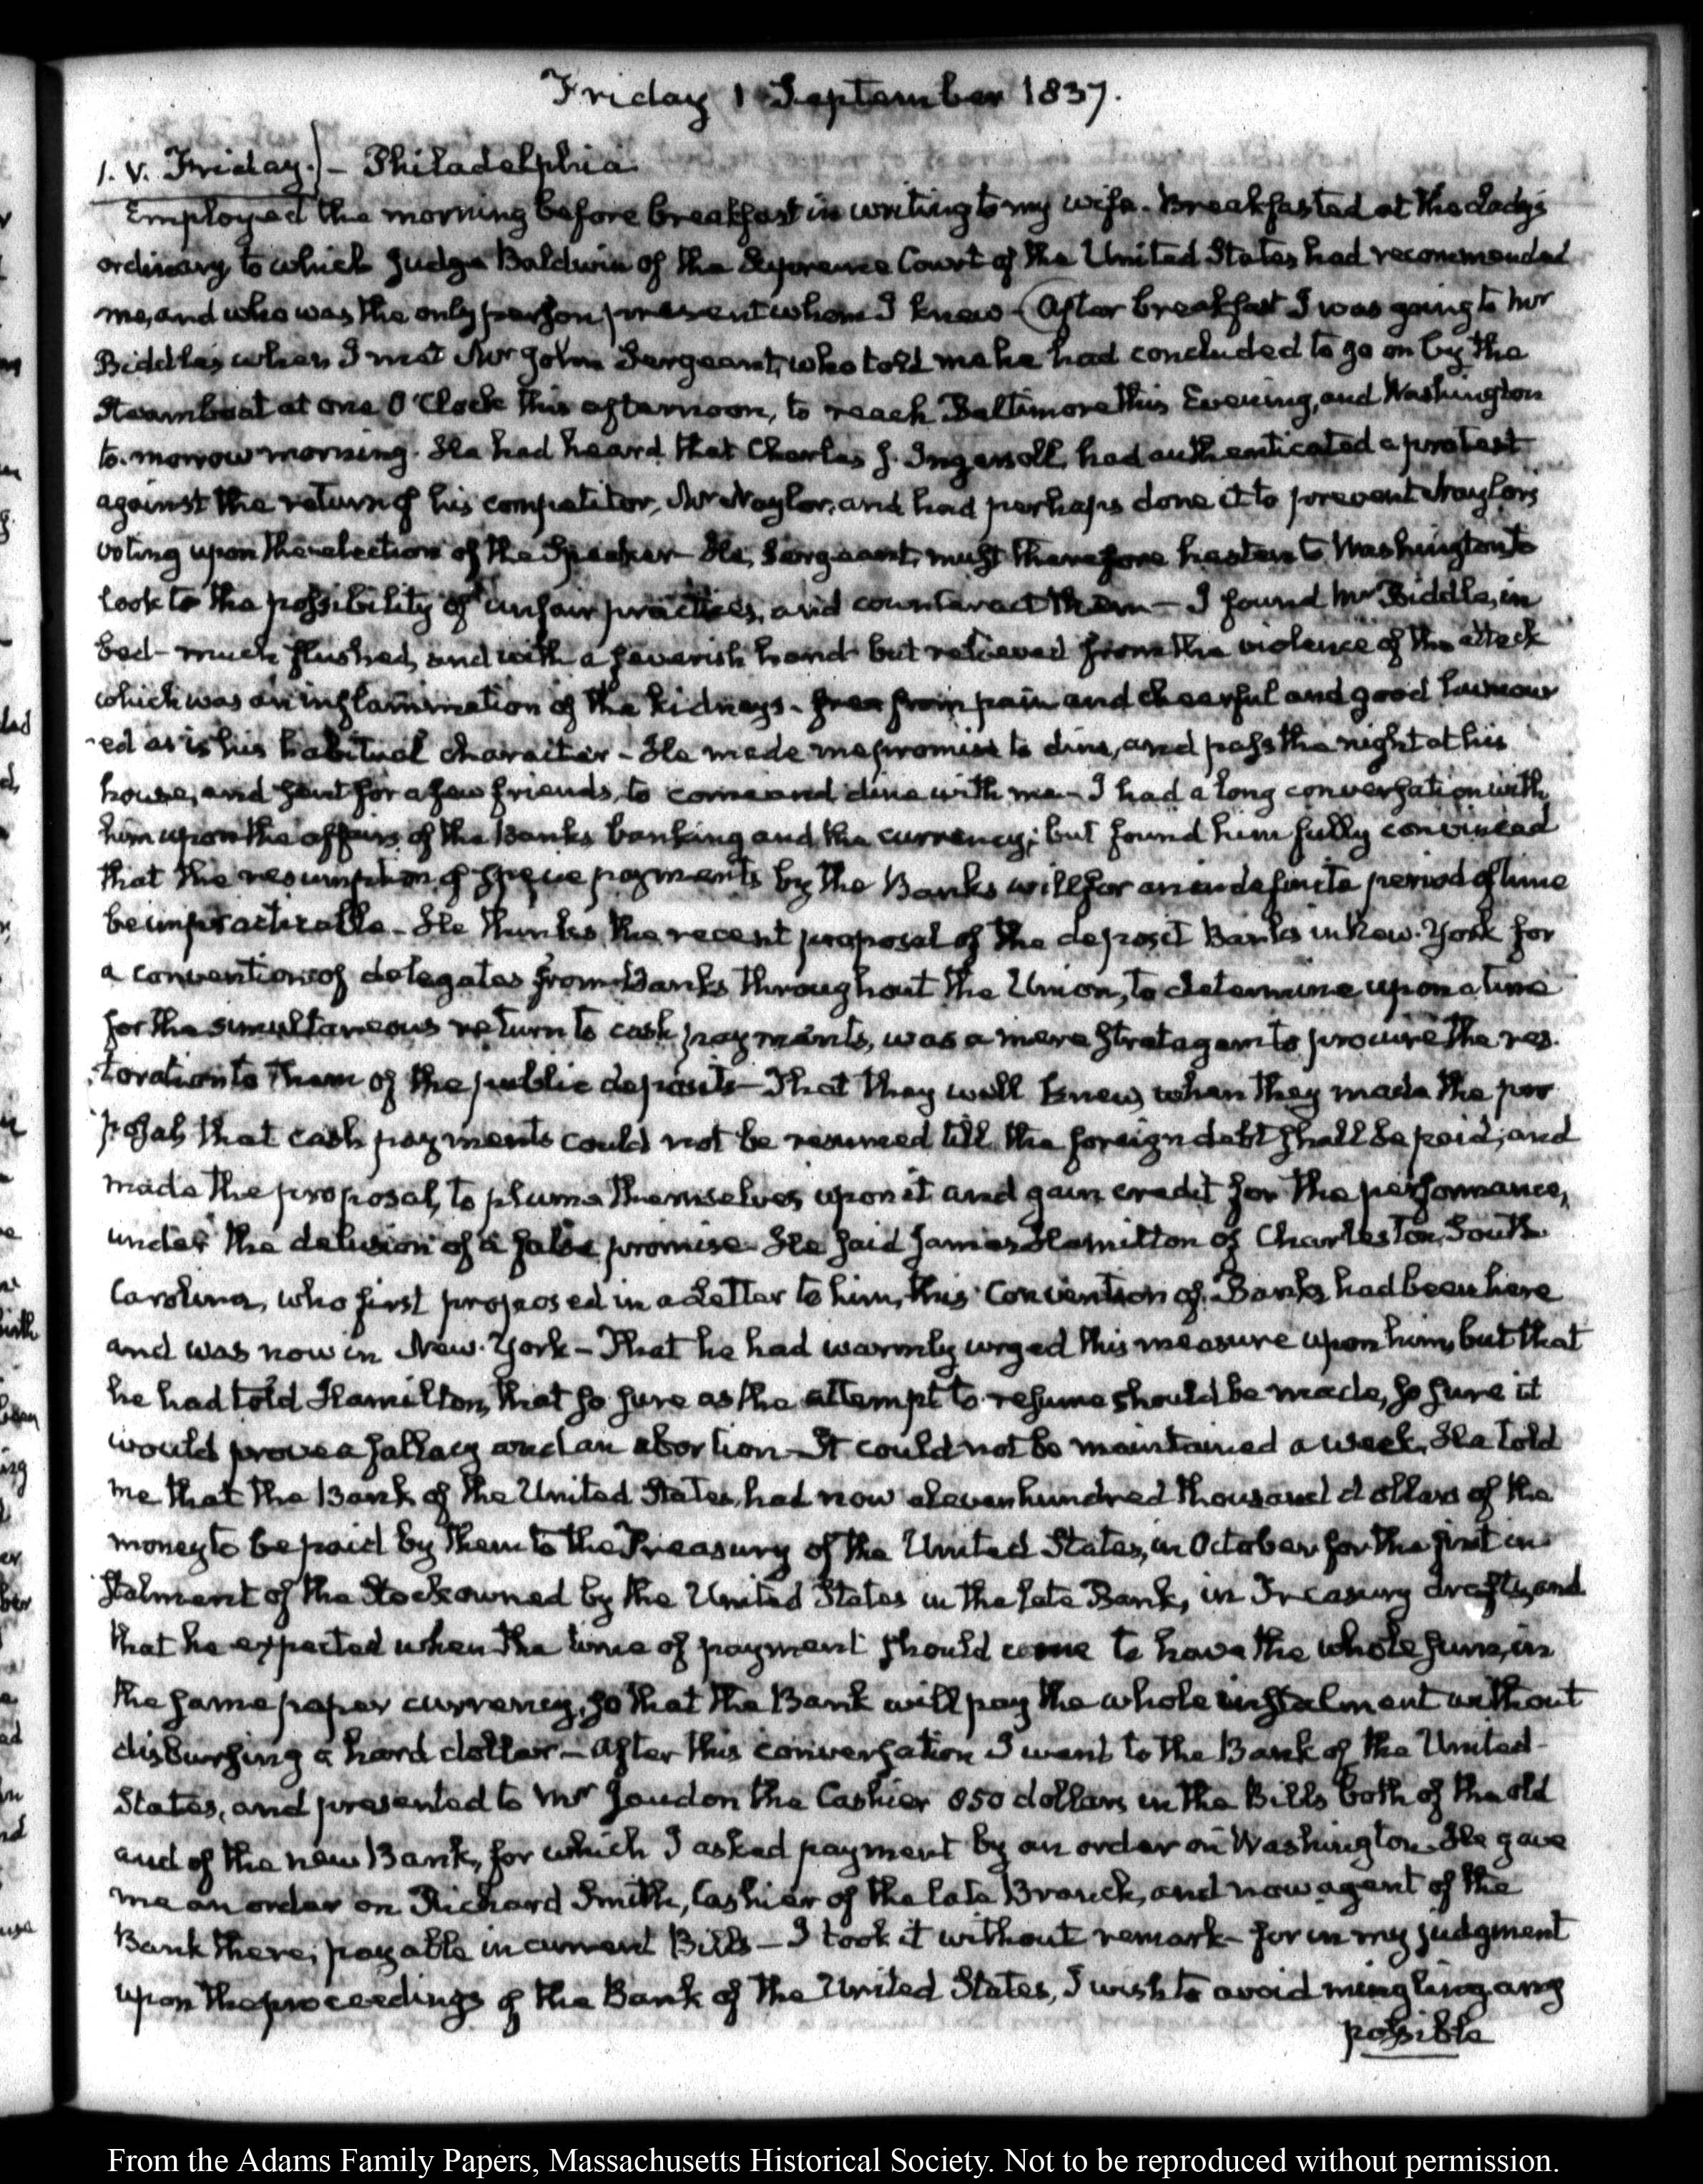 Friday 1 September 1837.
1. V. Friday.) - Philadelphia
Employed the morning before breakfast in writing to my wife. Breakfasted at the Lady's
ordinary to which Judge Baldwin of the Supreme Court of the United States had recommended
me, and who was the only person present whom I knew - After breakfast I was going to Mr
Biddle's when I met Mr John Sergeant, who told me he had concluded to go on by the
Steamboat at one O'Clock this afternoon, to reach Baltimore this Evening, and Washington
to-morrow morning. He had heard that Charles J. Ingersoll, had authenticated a protest
against the return of his competitor, Mr Naylor, and had perhaps done it to prevent Naylor's
voting upon the election of the Speaker - He, Sergeant, must therefore hasten to Washington to
look to the possibility of unfair practices, and counteract them - I found Mr Biddle, in
bed - much flushed, and with a feverish hand - but relieved from the violence of the attack
which was an inflammation of the kidneys - free from pain and cheerful and good humour
-ed as is his habitual character - He made me promise to dine, and pass the night at his
house, and sent for a few friends, to come and dine with me - I had a long conversation with
him upon the affairs of the Banks banking and the currency; but found him fully convinced
that the resumption of specie payments by the Banks will for an indefinite period of time
be impracticable - He thinks the recent proposal of the deposit Banks in New-York for
a convention of delegates from Banks throughout the Union, to determine upon a time
for the simultaneous return to cash payments, was a mere stratagem to procure the res-
toration to them of the public deposits - That they well knew, when they made the pro
posal that cash payments could not be resumed till the foreign debt shall be paid; and
made the proposal, to plume themselves upon it and gain credit for the performance,
under the delusion of a false promise - He said James Hamilton of Charleston, South
Carolina, who first proposed in a Letter to him, this Convention of Banks had been here
and was now in New-York - That he had warmly urged this measure upon him, but that
he had told Hamilton, that so sure as the attempt to resume should be made, so sure it
would prove a fallacy and an abortion - It could not be maintained a week. He told
me that the Bank of the United States, had now eleven hundred thousand dollars of the
money to be paid by them to the Treasury of the United States, in October for the first in-
stalment of the Stock owned by the United States in the late Bank, in Treasury drafts, and
that he expected when the time of payment should come to have the whole sum, in
the same paper currency, so that the Bank will pay the whole instalment without
disbursing a hard dollar - After this conversation I went to the Bank of the United
States, and presented to Mr Jaudon the Cashier 850 dollars in the Bills both of the old
and of the new Bank, for which I asked payment by an order on Washington. He gave
me an order on Richard Smith, Cashier of the late Branch, and now agent of the
Bank there, payable in current Bills - I took it without remark - for in my judgment
upon the proceedings of the Bank of the United States, I wish to avoid mingling any
possible
From the Adams Family Papers, Massachusetts Historical Society. Not to be reproduced without permission.